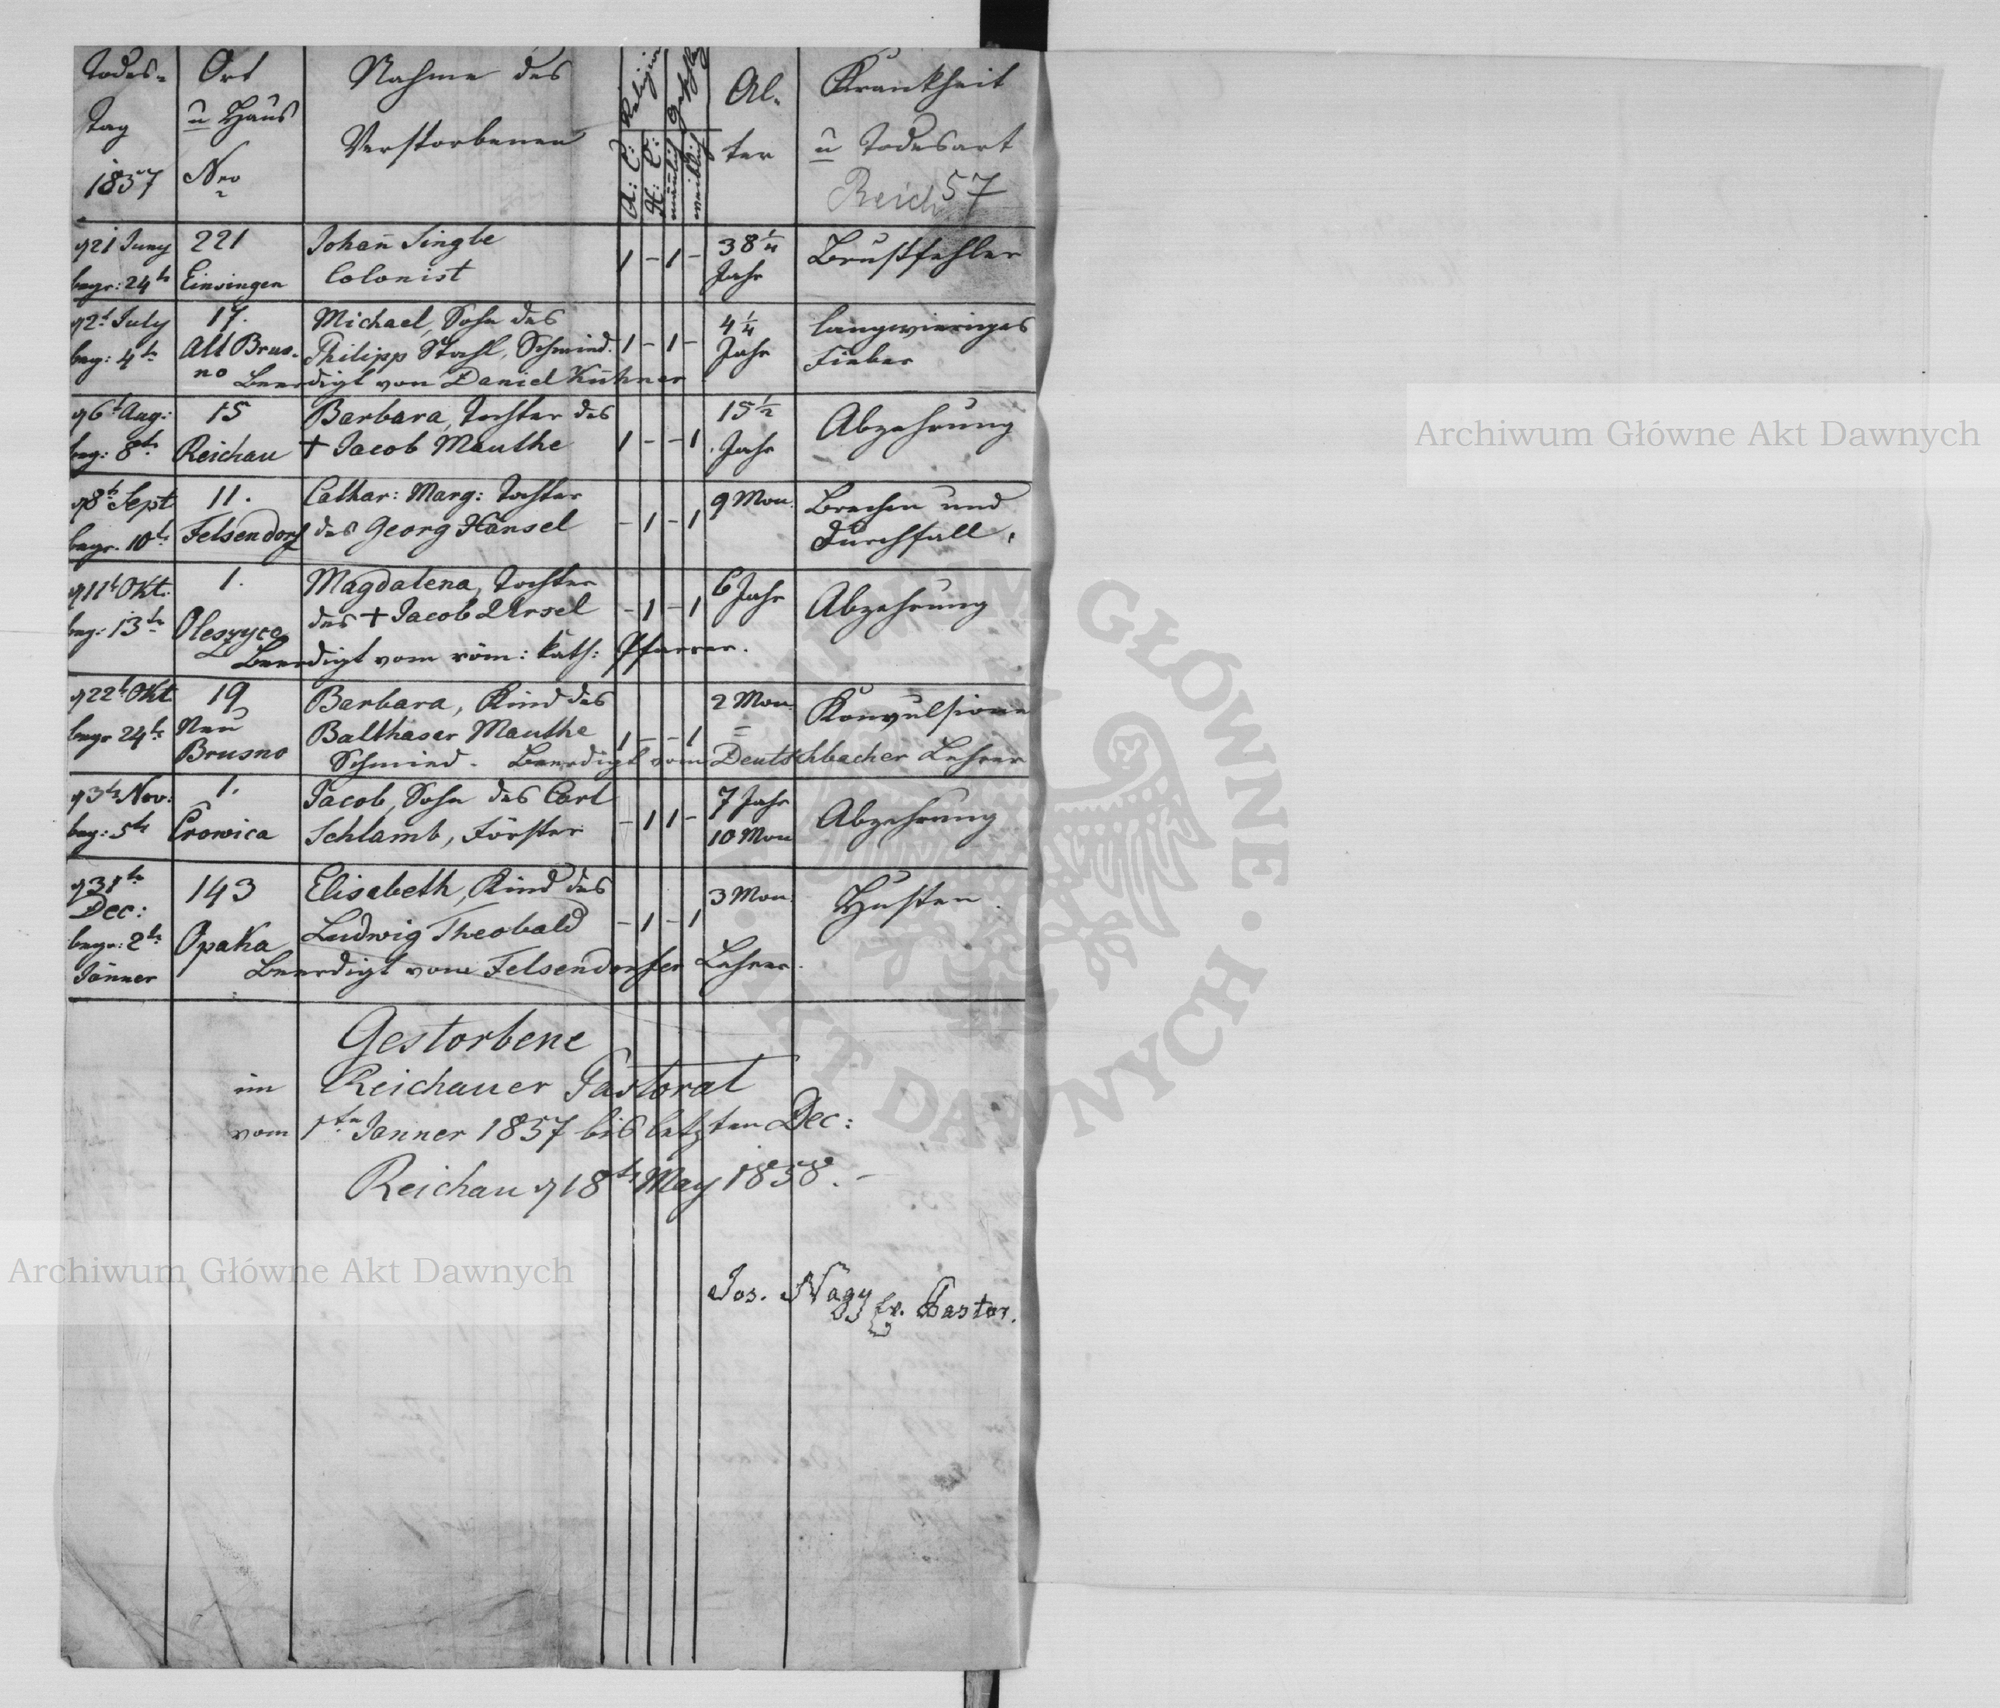 Todes- Ort Nahme des Religion Geschlecht Al- Krankheit
Tag u Haus Verstorbenen A: C: H: C: männlich weiblich ter u Todesart
1857 Nro Reich 57
21 Juny 221 Johañ Single 1 – 1 – 38 1/4 Brustfehler
begr: 24t Einsingen Colonist Jahr
2t July 17. Michael, Sohn des 4 1/4 langwieriges
beg: 4t Alt Brus- Philipp Stahl, Schmied. 1 – 1 – Jahr Fieber
no Beerdigt von Daniel Kühner
6t Aug: 15 Barbara, Tochter des 15 1/2 Abzehrung
beg: 8t Reichau † Jacob Mauthe 1 – – 1 Jahr
8t Sept 11. Cathar: Marg: Tochter 9 Mon. Brechen und
begr. 10t Felsendorf des Georg Hänsel – 1 – 1 Durchfall.
11t Okt: 1. Magdalena, Tochter 6 Jahr Abzehrung
beg: 13t Oleszyce des † Jacob Ursel – 1 – 1
Beerdigt vom röm: kath: Pfarrer.
22t Okt 19 Barbara, Kind des 2 Mon. Konvulsionen
begr 24t Neu Balthaser Mauthe 1 – – 1
Brusno Schmied. Beerdigt vom Deutschbacher Lehrer
3t Nov. 1. Jacob, Sohn des Carl 7 Jahr Abzehrung
beg: 5t Crowica Schlamb, Förster – 1 1 – 10 Mon
31t 143 Elisabeth, Kind des 3 Mon. Husten.
Dec:
begr: 2t Opaka Ludwig Theobald – 1 – 1
Jänner Beerdigt vom Felsendorfer Lehrer.
Gestorbene
im Reichauer Pastorat
vom 1ten Janner 1857 bis letzten Dec:
Reichau 18t May 1858. –
Jos. Nagy Ev. Pastor.
Archiwum Główne Akt Dawnych
Archiwum Główne Akt Dawnych
ARCHIWUM GŁÓWNE · AKT DAWNYCH ·